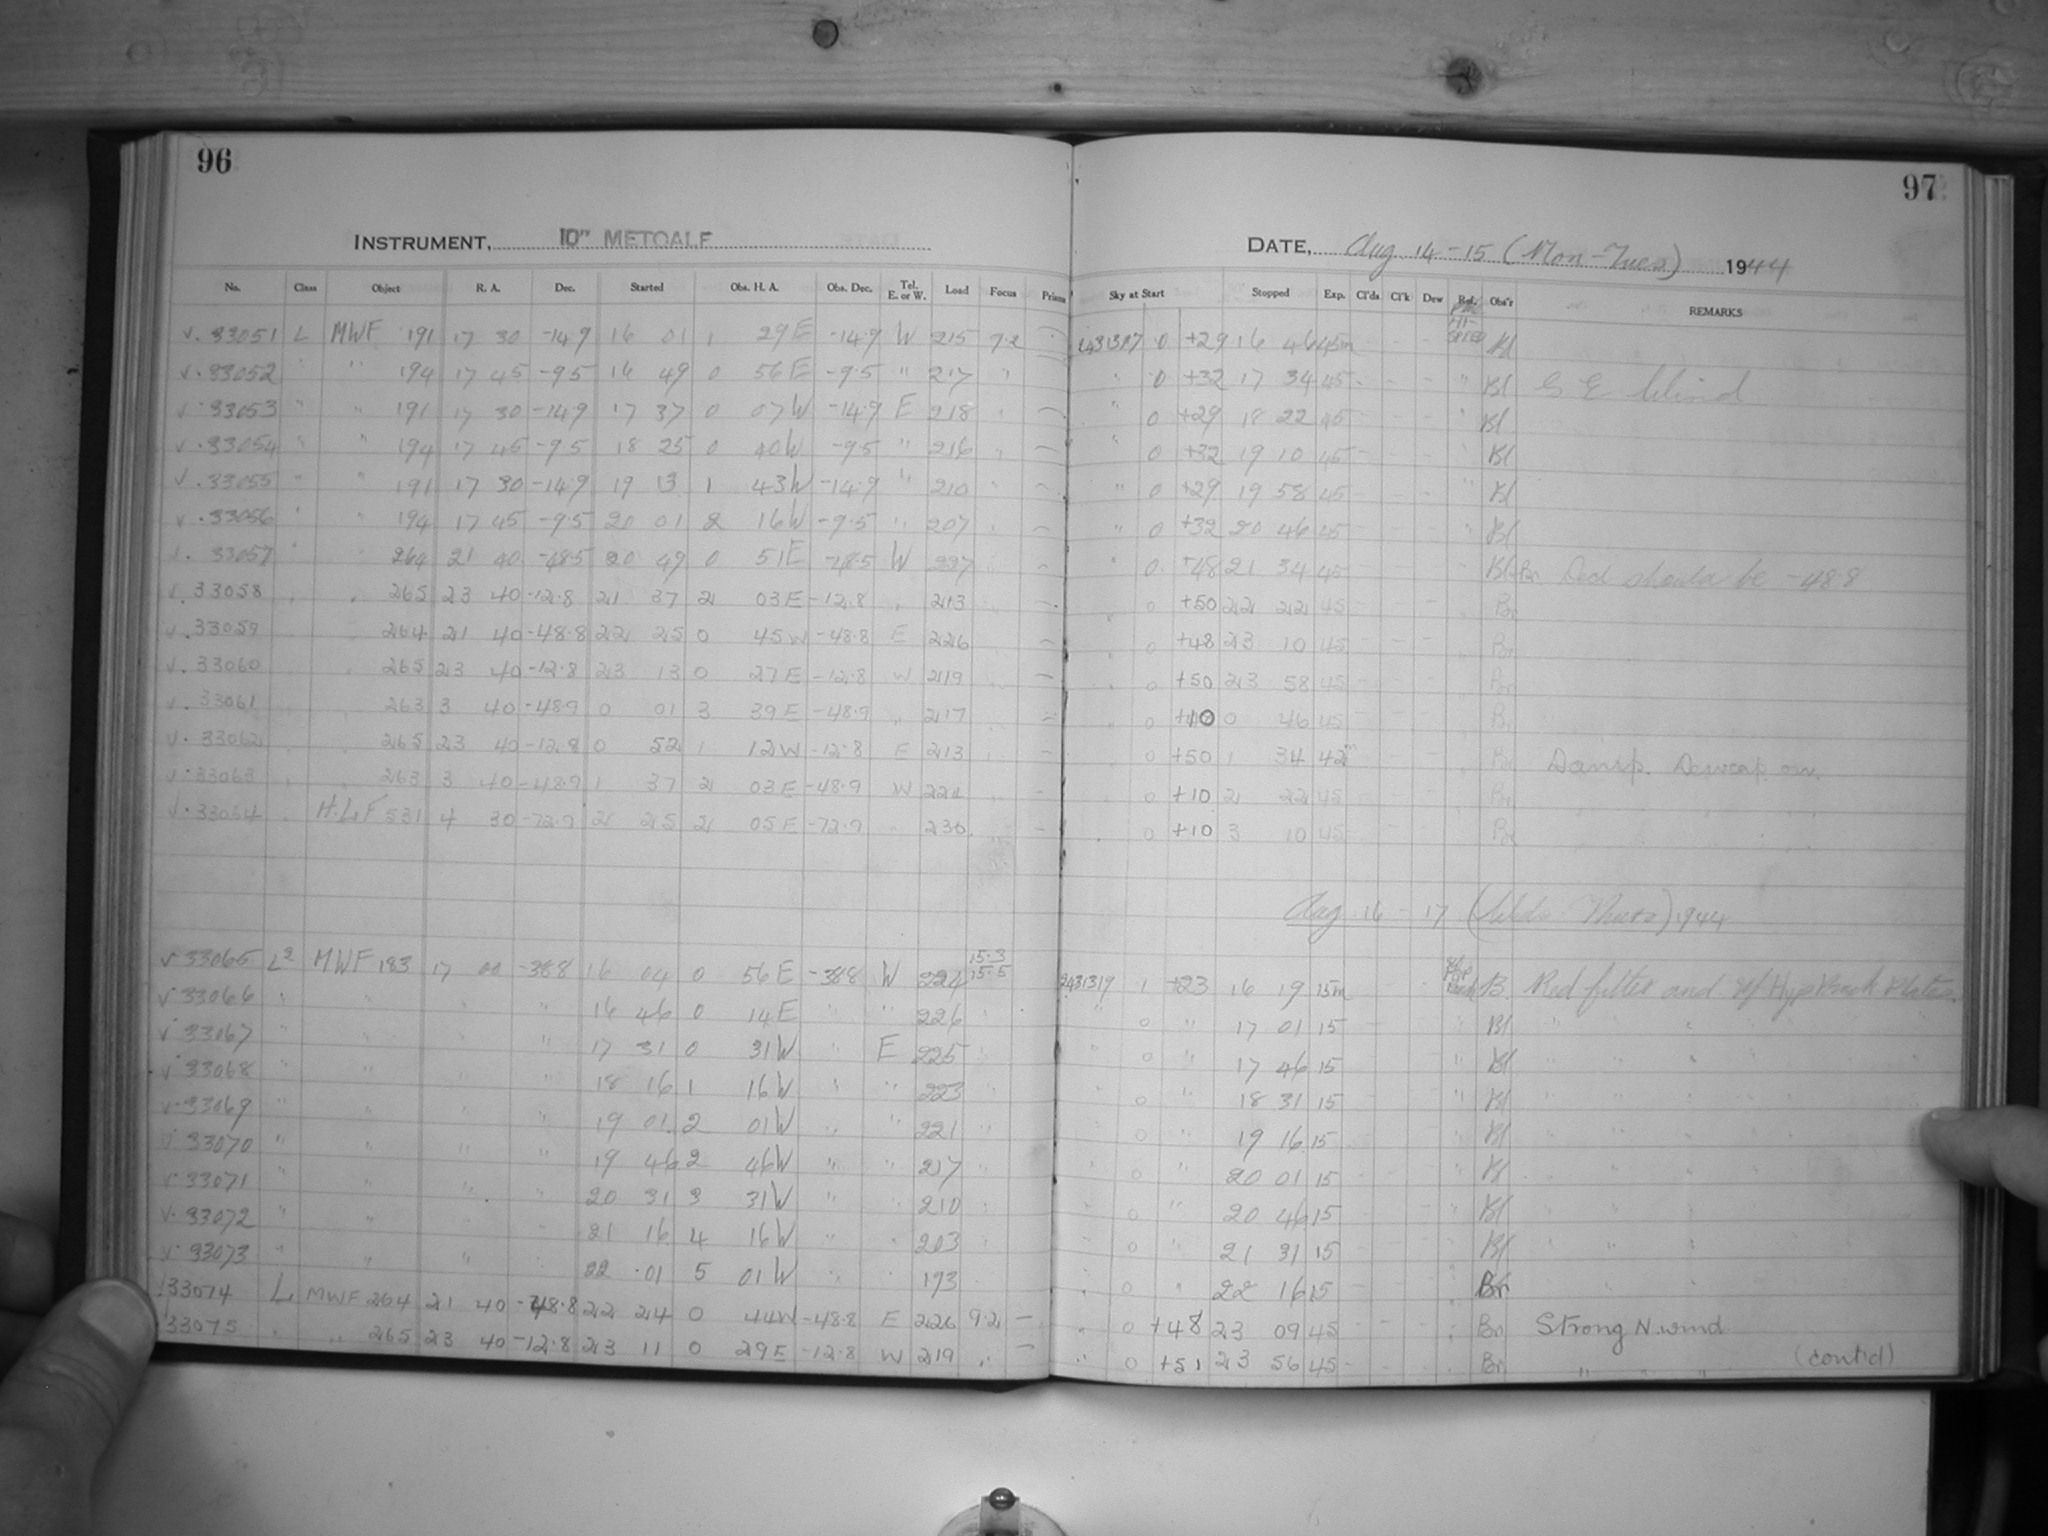 96
97
INSTRUMENT, 10" METCALF
DATE, Aug. 14-15 (Mon-Tues) 1944
No. Class Object R. A. Dec. Started Obs. H. A. Obs. Dec. Tel. E. or W. Load Focus Prisms Sky at Start Stopped Exp. Cl'ds Cl'k Dew Rel. Obs'r REMARKS
33051 L MWF 191 17 30 -14.9 16 01 1 29E -14.9 W 215 7.2 0 +29 16 46 45m HI-SPEED Bl
33052 " " 194 17 45 -9.5 16 49 0 56E -9.5 " 217 " " 0 +32 17 34 45 - - - " Bl S E Wind
33053 " " 191 17 30 -14.9 17 37 0 07W -14.9 E 218 " - " 0 +29 18 22 45 Bl
33054 " " 194 17 45 -9.5 18 25 0 40W -9.5 " 216 " - " 0 +32 19 10 45 Bl
33055 " " 191 17 30 -14.9 19 13 1 43W -14.9 " 210 " - " 0 +29 19 58 45 - - - " Bl
33056 " " 194 17 45 -9.5 20 01 2 16W -9.5 " 207 " - " 0 +32 20 46 45 " Bl
33057 " " 264 21 40 -48.5 20 49 0 51E -48.5 W 227 " - " 0 +48 21 34 45 " Bl+Bn Decl should be -48.8
33058 " " 265 23 40 -12.8 21 37 2 03E -12.8 " 213 - " 0 +50 22 22 45 - - - Bn
33059 264 21 40 -48.8 22 25 0 45W -48.8 E 226 - " 0 +48 23 10 45 - - - Bn
33060 " 265 23 40 -12.8 23 13 0 27E -12.8 W 219 - " 0 +50 23 58 45 - - - Bn
33061 263 3 40 -48.9 0 01 3 39E -48.9 " 217 - " 0 +10 0 46 45 - - - Bn
33062 " 265 23 40 -12.8 0 52 1 12W -12.8 E 213 - " 0 +50 1 34 42 - - - Bn Damp. Dewcap on.
33063 " " 263 3 40 -48.9 1 37 2 03E -48.9 W 224 - " 0 +10 2 22 45 - - - Bn
33064 " H.LF 531 4 30 -72.9 2 25 2 05E -72.9 " 230 - " 0 +10 3 10 45 - - - Bn
Aug 16 - 17 (Weds-Thurs) 1944
33065 L2 MWF 183 17 00 -38.8 16 04 0 56E -38.8 W 224 15.3 15.5 2431319 1 +23 16 19 15m B. Red filter and Hyp Pank Plates.
33066 " " " 16 46 0 14E " " 226 " " 0 " 17 01 15 " Bl " " " "
33067 " " " 17 31 0 31W " E 225 " " 0 " 17 46 15 " Bl " " " "
33068 " " " 18 16 1 16W " " 223 " " 0 " 18 31 15 " Bl " " " "
33069 " " " 19 01 2 01W " " 221 " " 0 " 19 16 15 Bl " " "
33070 " " " 19 46 2 46W " " 217 " " 0 " 20 01 15 Bl " " "
33071 " " " 20 31 3 31W " " 210 " " 0 " 20 46 15 " Bl " " "
33072 " " 21 16 4 16W " " 203 " " 0 " 21 31 15 " Bl " " "
33073 " " " 22 01 5 01W " " 193 " 0 " 22 16 15 - Bn
33074 L MWF 264 21 40 -48.8 22 24 0 44W -48.8 E 226 9.2 - " 0 +48 23 09 45 - - - " Bn Strong N. wind
33075 " " 265 23 40 -12.8 23 11 0 29E -12.8 W 219 " - " 0 +51 23 56 45 - - - " Bn " " "
(contd)